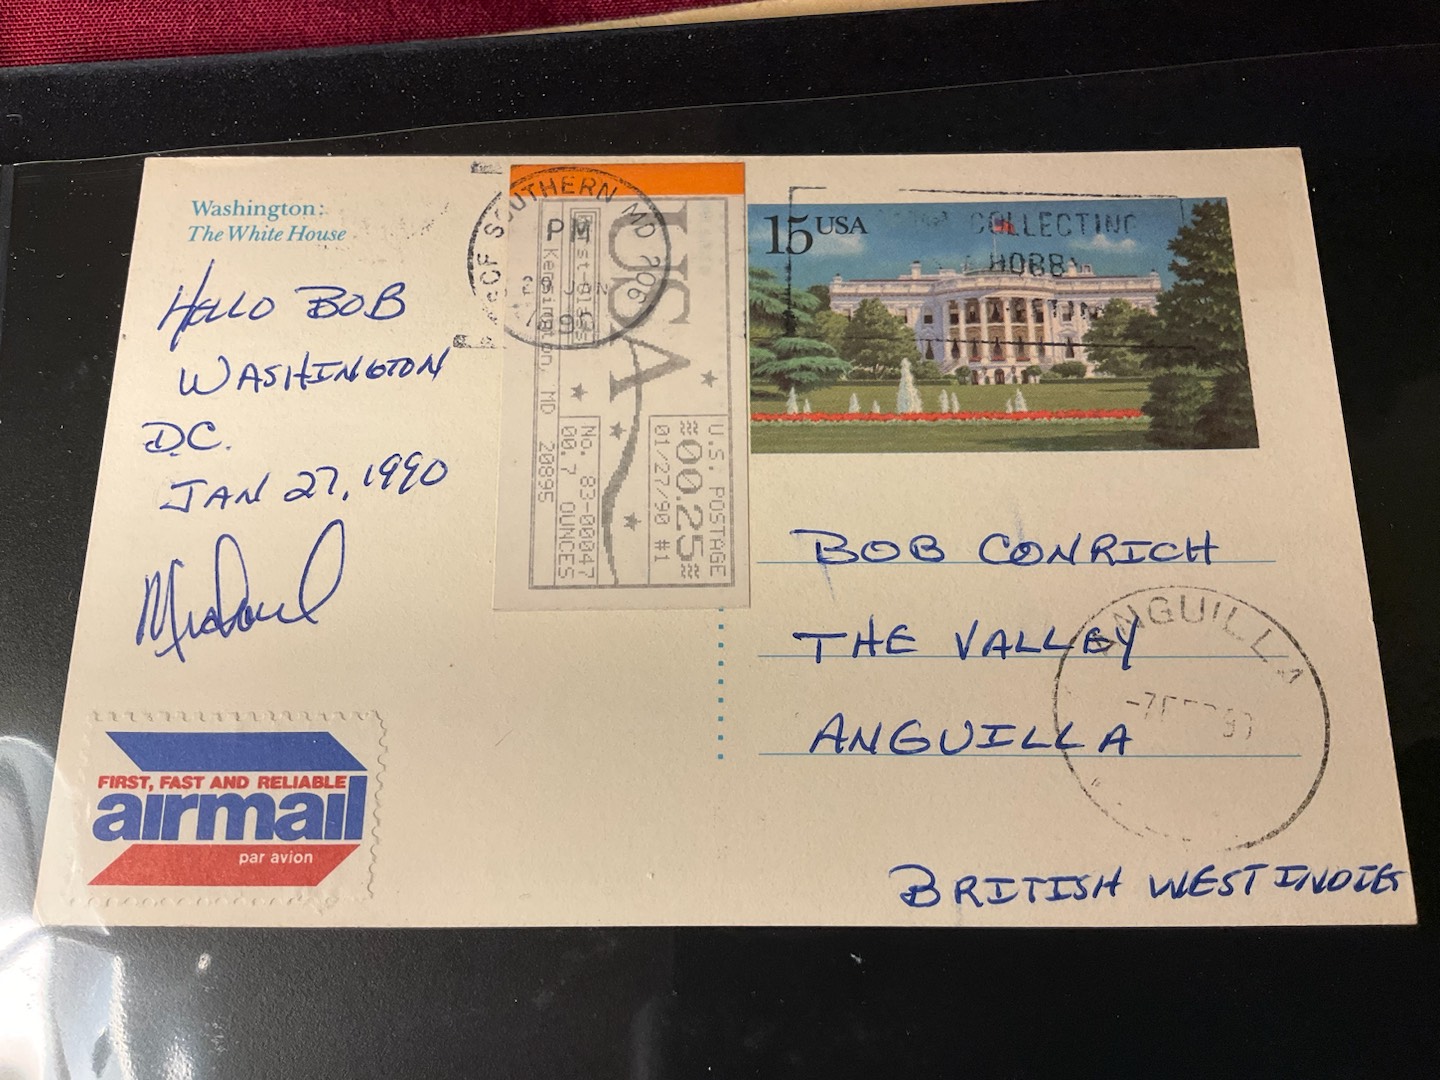 Washington:
The White House
HELLO BOB
WASHINGTON
D.C.
JAN 27, 1990
Michael
FIRST, FAST AND RELIABLE
airmail
par avion
SOUTHERN MD 206
PM
USA
1st-Class
Kensington, MD 20895
No. 83-00047
00.7 OUNCES
U.S. POSTAGE
≈00.25≈
01/27/90 #1
15 USA
COLLECTING
HOBBY
BOB CONRICH
THE VALLEY
ANGUILLA
BRITISH WEST INDIES
ANGUILLA